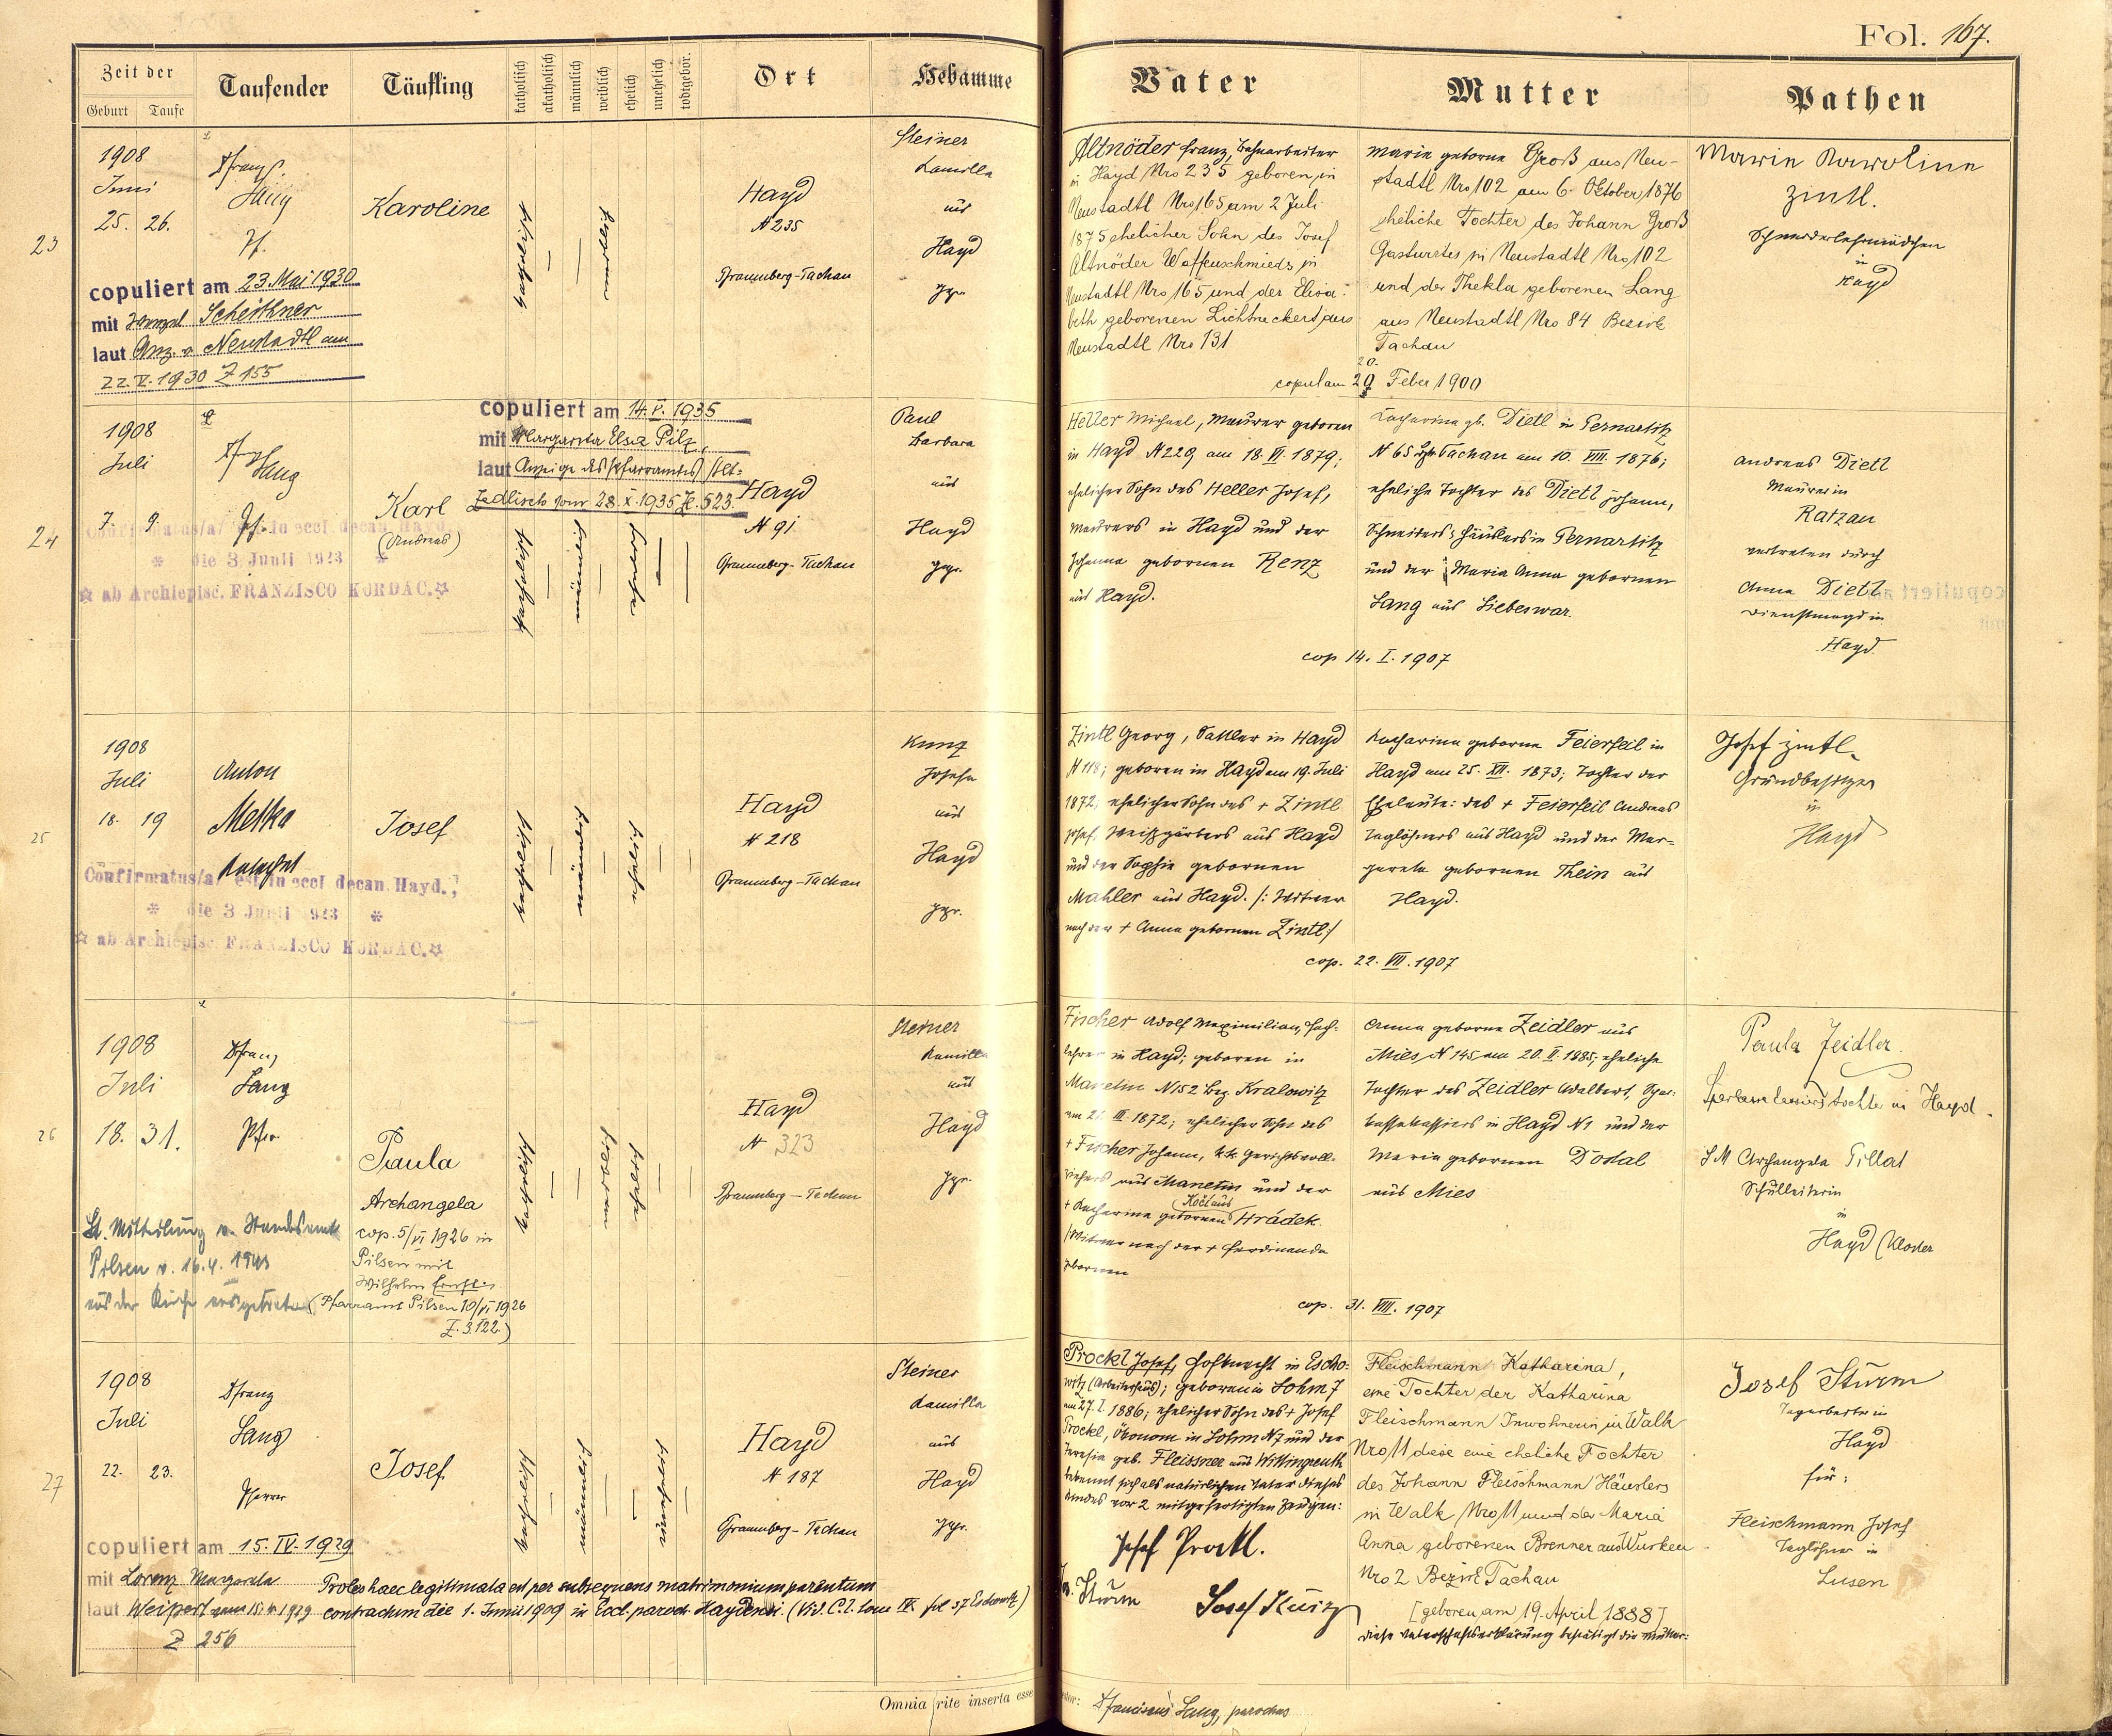 Fol. 167.
Zeit der
Geburt
Taufe
Taufender
Täufling
katholisch
akatholisch
männlich
weiblich
ehelich
unehelich
todtgebor.
Ort
Hebamme
Vater
Mutter
Pathen
23
1908
Juni
25. 26.
Franz
Lang
Pf.
Karoline
copuliert am 23. Mai 1930
mit Scheithner
laut Anz. v. Neustadtl am
22.V.1930 Z 155
katholisch
Hayd
N 235
Pfraumberg-Tachau
Steiner
Kamilla
aus
Hayd
gepr.
Altnöder Franz, Bahnarbeiter
in Hayd Nro 235 geboren in
Neustadtl Nro 165 am 2 Juli
1875 ehelicher Sohn des Josef
Altnöder Waffenschmieds in
Neustadtl Nro 165 und der Elisa-
beth geborenen Lichtneckert aus
Neustadtl Nro 131
Marie geborne Groß aus Neu-
stadtl Nro 102 am 6. Oktober 1876
eheliche Tochter des Johann Groß
Gastwirtes in Neustadtl Nro 102
und der Thekla geborenen Lang
aus Neustadtl Nro 84 Bezirk
Tachau
20.
copul am Feber 1900
Marie Karoline
Zintl.
Schneiderlehrmädchen
in
Hayd
24
1908
Juli
7. 9.
Franz
Lang
Pf.
Karl
(Andreas)
copuliert am 14.V.1935
mit Margareta Elsa Pilz
laut Anzeige des Pfarramtes Alt-
Zedlisch vom 28.X.1935 Z. 523.
Confirmatus/a/ est in eccl decan. Hayd.
die 3 Junii 1923
ab Archiepisc. FRANZISCO KORDAC.
katholisch
männlich
Hayd
N 91
Pfraumberg-Tachau
Paul
Barbara
aus
Hayd
gepr.
Heller Michael, Maurer geboren
in Hayd N 229 am 18. VI. 1879;
ehelicher Sohn des Heller Josef,
Maurers in Hayd und der
Johanna gebornen Renz
aus Hayd.
Katharina gb. Dietl in Pernartitz
N 65 Bzk Tachau am 10. VIII. 1876;
eheliche Tochter des Dietl Johann,
Schneiders Häuslers in Pernartitz
und der Maria Anna gebornen
Lang aus Liebeswar.
cop 14. I. 1907
Andreas Dietl
Maurer in
Ratzau
vertreten durch
Anna Dietl
Dienstmagd in
Hayd
25
1908
Juli
18. 19
Anton
Metka
Katechet
Josef
Confirmatus/a/ est in eccl decan. Hayd.,
die 3 Junii 1923
ab Archiepisc. FRANZISCO KORDAC.
katholisch
männlich
ehelich
Hayd
N 218
Pfraumberg-Tachau
Kunz
Josefa
aus
Hayd
gepr.
Zintl Georg, Sattler in Hayd
N 118; geboren in Hayd am 19. Juli
1872, ehelicher Sohn des + Zintl
Josef, Weißgärbers aus Hayd
und der Sophie gebornen
Mahler aus Hayd. /: Witwer
nach der + Anna gebornen Zintl /
Katharina geborne Feierfeil in
Hayd am 25. XII. 1873; Tochter der
Eheleute: des + Feierfeil Andreas
Taglöhners aus Hayd und der Mar-
gareta gebornen Thein aus
Hayd.
cop. 22. VII. 1907
Josef Zintl
Grundbesitzer
in
Hayd
26
1908
Juli
18. 31.
Franz
Lang
Pfr.
Paula
Archangela
cop. 5/VI 1926 in
Pilsen mit
Wilhelm
(Pfarramt Pilsen 10/VI 1926
Z. 3.122.)
Lt. Mitteilung v. Standesamt
Pilsen v. 16.4. 1943
aus der Kirche ausgetreten
katholisch
Hayd
N 323
Pfraumberg-Tachau
Steiner
Kamilla
aus
Hayd
gepr.
Fischer Adolf Maximilian, Fach-
lehrer in Hayd; geboren in
Manetin N 152 Bez. Kralowitz
am 21. III. 1872; ehelicher Sohn des
+ Fischer Johann, k.k. Gerichtsvoll-
ziehers aus Manetin und der
+ Katharina gebornen Hrádek.
/Witwer nach der + Ferdinanda
gebornen
Anna geborne Zeidler aus
Mies N 145 am 20. II. 1885; eheliche
Tochter des Zeidler Adalbert, Spar-
kassakassiers in Hayd N 1 und der
Maria gebornen Dostal
aus Mies
cop. 31. VIII. 1907
Paula Zeidler
Sparkassakassiers tochter in Hayd.
S M Archangela Pillat
Schulleiterin
in
Hayd (Kloster
27
1908
Juli
22. 23.
Franz
Lang
Pfarrer
Josef
copuliert am 15.IV.1929
mit Lorenz Margareta
laut Weipert vom 15.4.1929
Z 256
Proles haec legitimata est per subsequens matrimonium parentum
contractum die 1. Junii 1909 in Eccl. paroch. Haydensi. (Vid. C.L. tom IX. fol 37 Eschowitz)
katholisch
männlich
unehelich
Hayd
N 187
Pfraumberg-Tachau
Steiner
Kamilla
aus
Hayd
gepr.
Prockl Josef, Hofknecht in Escho-
witz (Arbeiterhaus); geboren in Lohm 7
am 27. I. 1886; ehelicher Sohn des + Josef
Prockl, Ökonom in Lohm N 7 und der
Theresia geb. Fleissner aus Wittingreuth
bekennt sich als natürlichen Vater dieses
Kindes vor 2 mitgefertigten Zeugen:
Josef Prockl.
Jos. Sturm
Josef Kurz
Fleischmann Katharina,
eine Tochter der Katharina
Fleischmann Inwohnerin in Walk
Nro 11 diese eine eheliche Tochter
des Johann Fleischmann Häuslers
in Walk Nro 11 und der Maria
Anna geborenen Brenner aus Wurken
Nro 2 Bezirk Tachau
[geboren am 19. April 1888]
diese Vaterschaftserklärung bestätigt die Mutter:
Josef Sturm
Tagarbeiter in
Hayd
für:
Fleischmann Josef
Taglöhner in
Lusen
Omnia rite inserta esse
Franciscus Lang, parochus